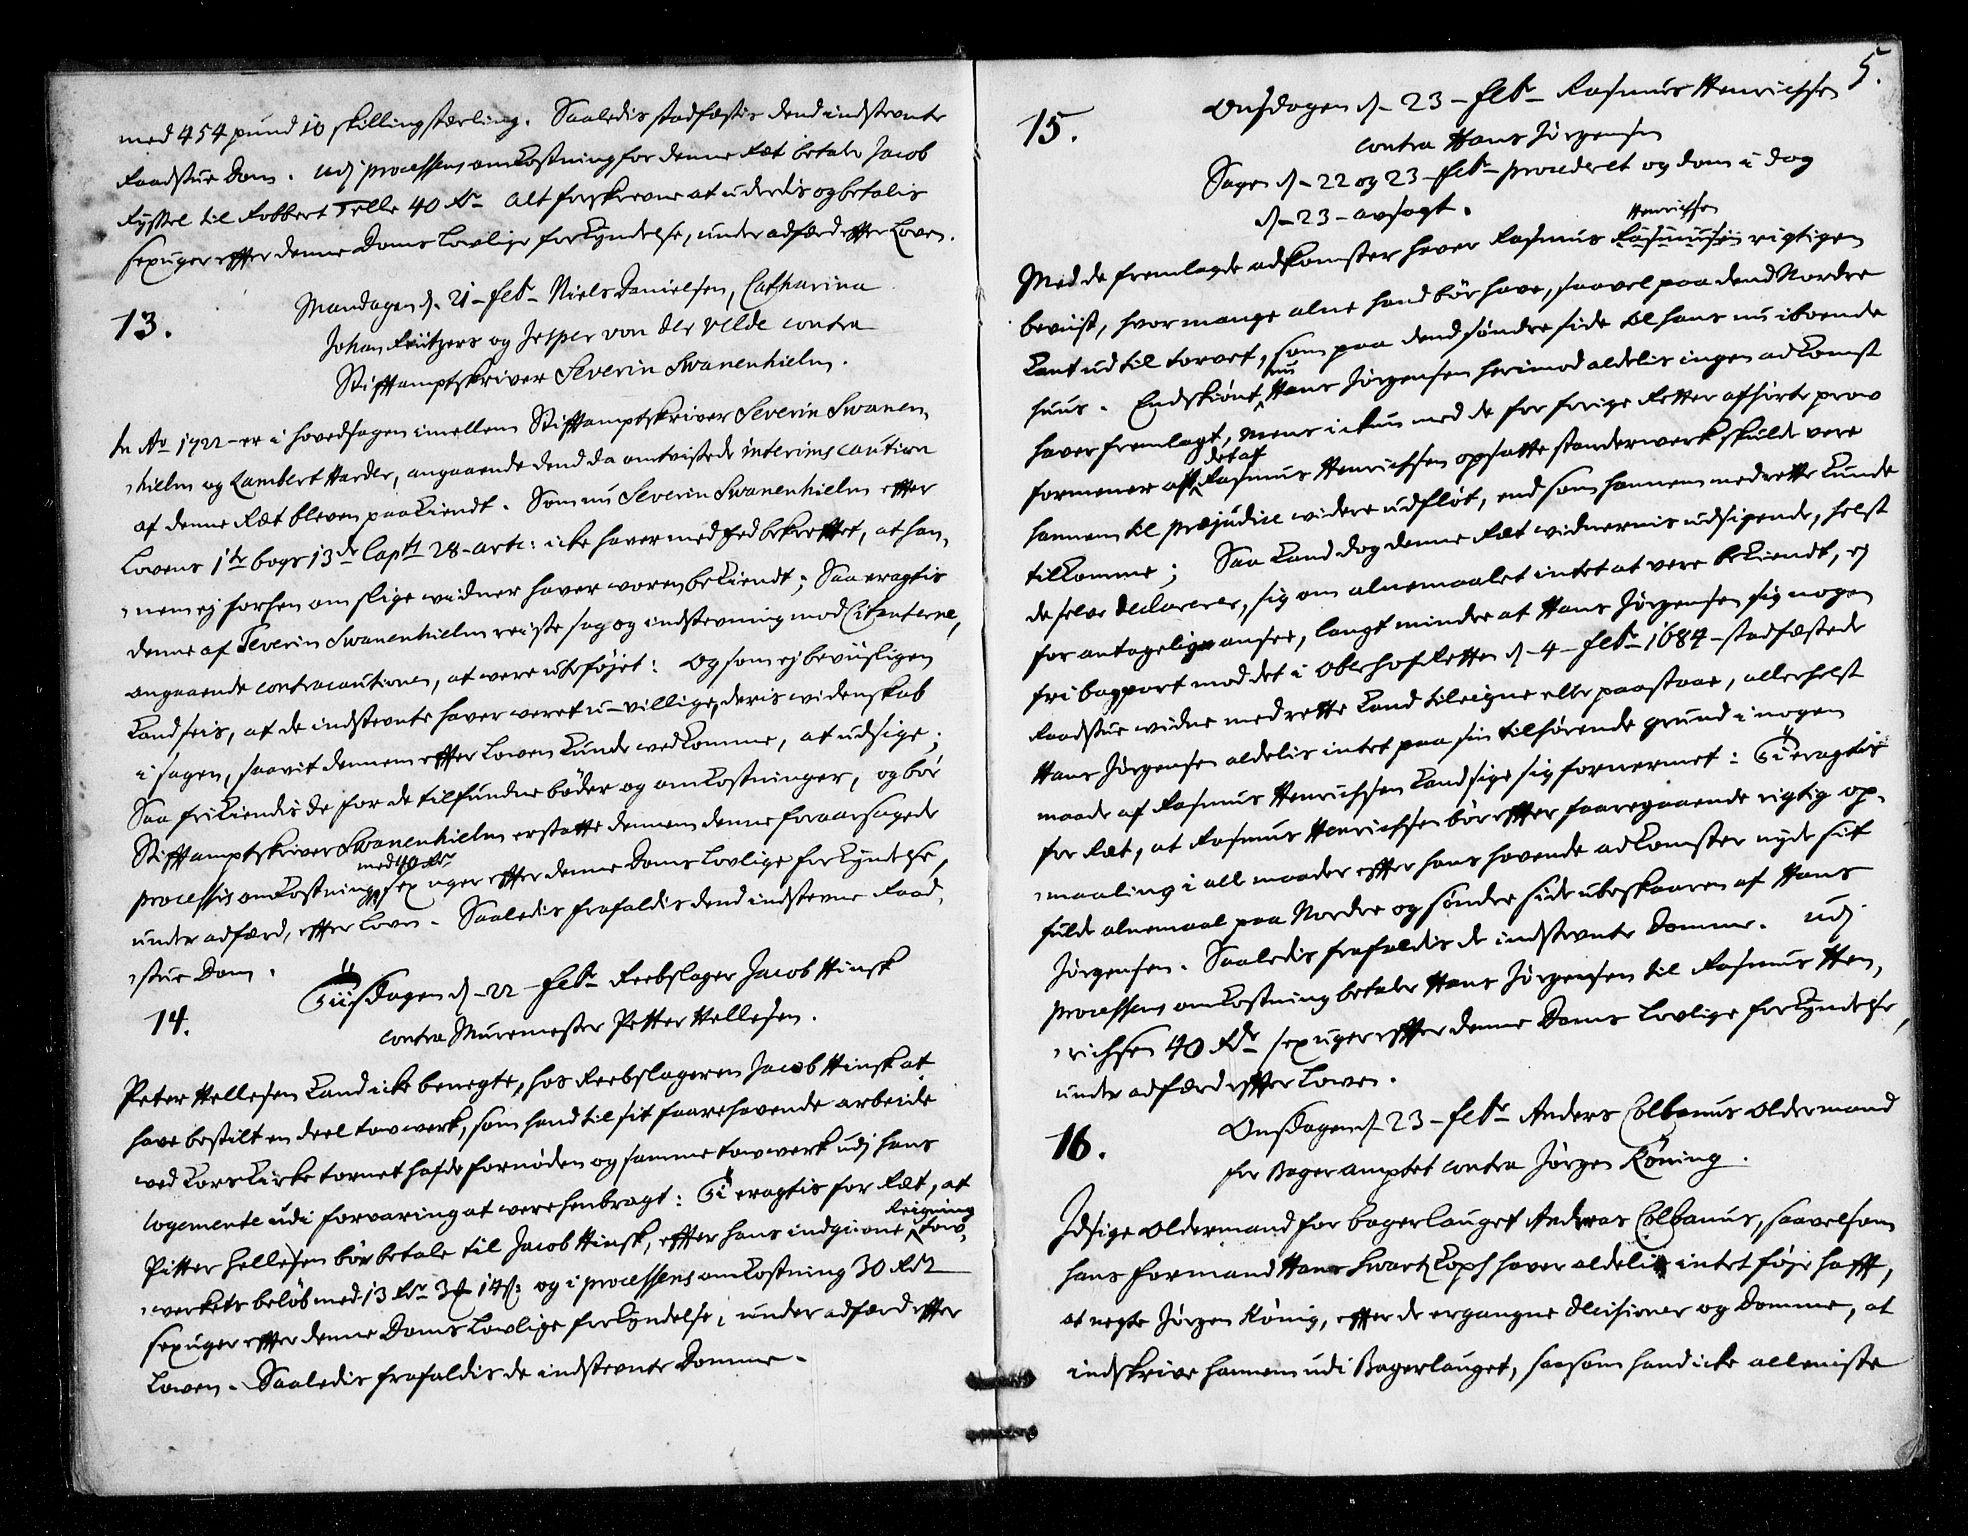 med 454 pund 10 skilling sterling. Saaledis stadfæstis dend indstevnte
Raadstue Dom. Udj processens omkostning for denne Ræt betaler Jacob
til Robbert Telle 40 Rdr alt forskrevne at uderdis og betalis
sex uger effter denne Doms lovlige forkyndelse, under adferd effter Loven.
13.
Mandagen d. 21 Febr Niels Danielsen, Catharina
Johan Reützers og Jesper von der Velde contra
Stifftamptskriver Severin Swanenhielm.
Ao 1722 er i hovedsagen imellem Stifftamptskriver Severin Swanen,
hielm og Lambert Harder, angaaende dend da omtvistede interims caution
af denne Ræt bleven paakiendt. Som nu Severin Swanenhielm effter
Lovens 1te bogs 13de Capt 28 artc: icke haver med Eed bekrefftet, at han,
nem ej forhen om slige widner haver woren bekiendt; Saa eragtis
denne af Severin Swanenhielm reiste sag og indstevning mod Citanterne,
angaaende contracautionen, at were ubeføjet: Og som ej bevüsligen
kand seis, at de indstevnte haver weret u-villige, deris widenskab
i sagen, saavit dennem effter Lowen kunde wedkomme, at udsige;
Saa frikiendis de for de tilfundne bøder og omkostninger, og bør
Stifftamptskriver Swanenhielm erstatte dennem denne foraarsagede
processis omkostning med 40 Rdr sex uger effter denne Doms lovlige forkyndelse,
under adferd, effter Loven. Saaledis frafaldis dend indstevne Raad,
stue Dom.
14.
Tiisdagen d. 22 Febr Reebslager Jacob Hinsk
contra Muremester Petter Hellesen.
Peter Hellesen kand icke benegte, hos Reebslageren Jacob Hinsk at
have bestilt en deel towwerk, som hand til sit faarehavende arbeide
ved Korskirke tornet hafde fornøden og samme towwerk udj hans
logemente udi forvaring at were henbragt: Ti eragtis for Ræt, at
Pitter Hellesen bør betale til Jacob Hinsk, effter hans indgivne Reigning tow,
werkets beløb med 13 Rdr 3 14 s: og i processens omkostning 30 Rdr
sex uger effter denne Doms lovlige forkyndelse, under adferd effter
Lowen. Saaledis frafaldis de indstevnte Domme.
5.
15.
Onsdagen d. 23 Febr Rasmus Henrichsen
contra Hans Jørgensen
Sagen d. 22 og 23 Febr procederet og dom i dag
d. 23 avsagt.
Med de fremlagde adkomster haver Rasmus Rasmusen Henrichsen rigtigen
bevüist, hvor mange alne hand bør have, saavel paa dend Nordre
kant ud til torvet, som paa dend søndre side til hans nu iboende
huus. Endskiønt nu Hans Jørgensen herimod aldelis ingen adkomst
haver fremlagt, mens ickun med de for forige Retter afhørte prov
formener at det aff Rasmus Henrichsen opsatte standerwerk skulde vere
hannem til præjudice widere udfløt, end som hannem med rette kunde
tilkomme; Saa kand dog denne Ræt widnernis udsigende, helst
de selv declarerer, sig om alnemaalet intet at vere bekiendt, ej
for antagelig ansee, langt mindre at Hans Jørgensen sig nogen
fri bagport mod det i Oberhofretten d. 4 Febr 1684 stadfæstede
Raadstue widne med rette kand tileigne eller paastaae, allerhelst
Hans Jørgensen aldelis intet paa sin tilhørende grund i nogen
maade af Rasmus Henrichsen kand sige sig fornermet: Ti eragtis
for Ræt, at Rasmus Henrichsen bør effter faaregaaende rigtig op,
maaling i alle maader effter hans havende adkomster nyde sit
fulde alnemaal paa Nordre og søndre side ubeskaaren af Hans
Jørgensen. Saaledis frafaldis de indstevnte Domme. Udj
processens omkostning betaler Hans Jørgensen til Rasmus Hen,
richsen 40 Rdr sex uger effter denne Doms lovlige forkyndelse,
under adferd effter Lowen.
16.
Onsdagen d. 23 Febr Anders Colbanus Oldermand
for Bager amptet contra Jørgen Köning.
Idsige Oldermand for bagerlauget Andreas Colbanus, saavelsom
hans formand Hans Swartzkopf haver aldelis intet føje hafft,
at negte Jørgen König, effter de ergangne decisioner og Domme, at
indskrive hannem udi Bagerlauget, saasom hand icke alleniste